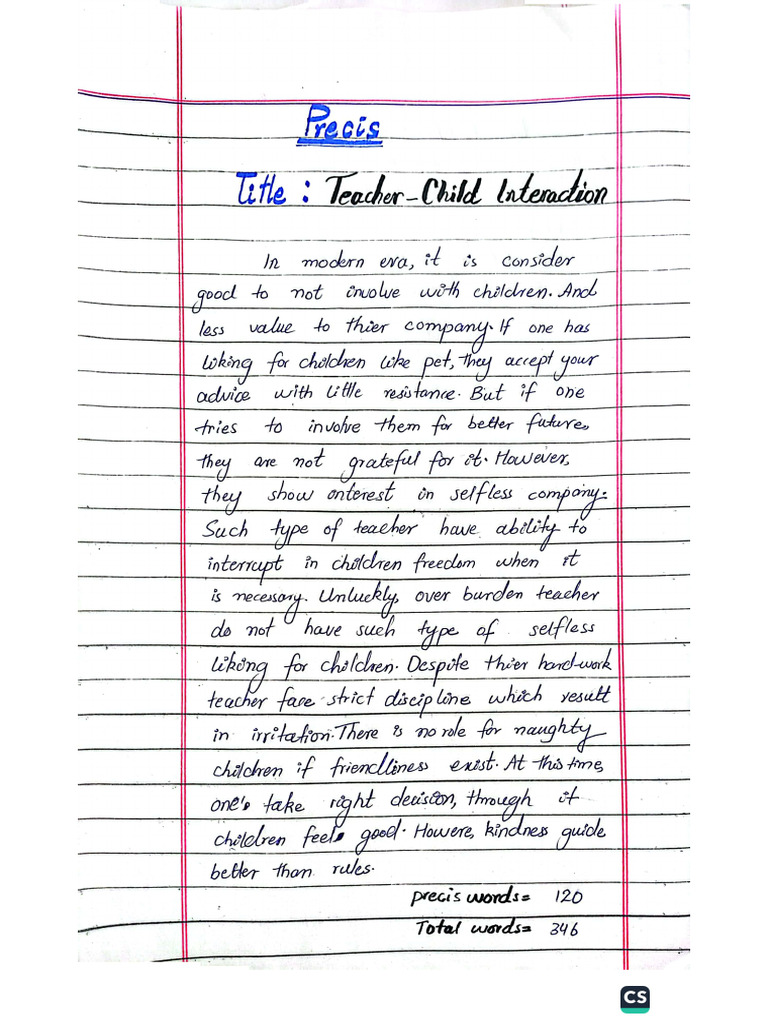 Precis
Title : Teacher-Child Interaction
In modern era, it is consider
good to not involve with children. And
less value to thier company. If one has
liking for children like pet, they accept your
advice with little resistance. But if one
tries to involve them for better future,
they are not grateful for it. However,
they show interest in selfless company.
Such type of teacher have ability to
interrupt in children freedom when it
is necessary. Unluckly, over burden teacher
do not have such type of selfless
liking for children. Despite thier hard-work
teacher face strict discipline which result
in irritation. There is no role for naughty
children if friendliness exist. At this time,
one's take right decision, through it
children feels good. Howere, kindness guide
better than rules.
precis words= 120
Total words= 346
CS